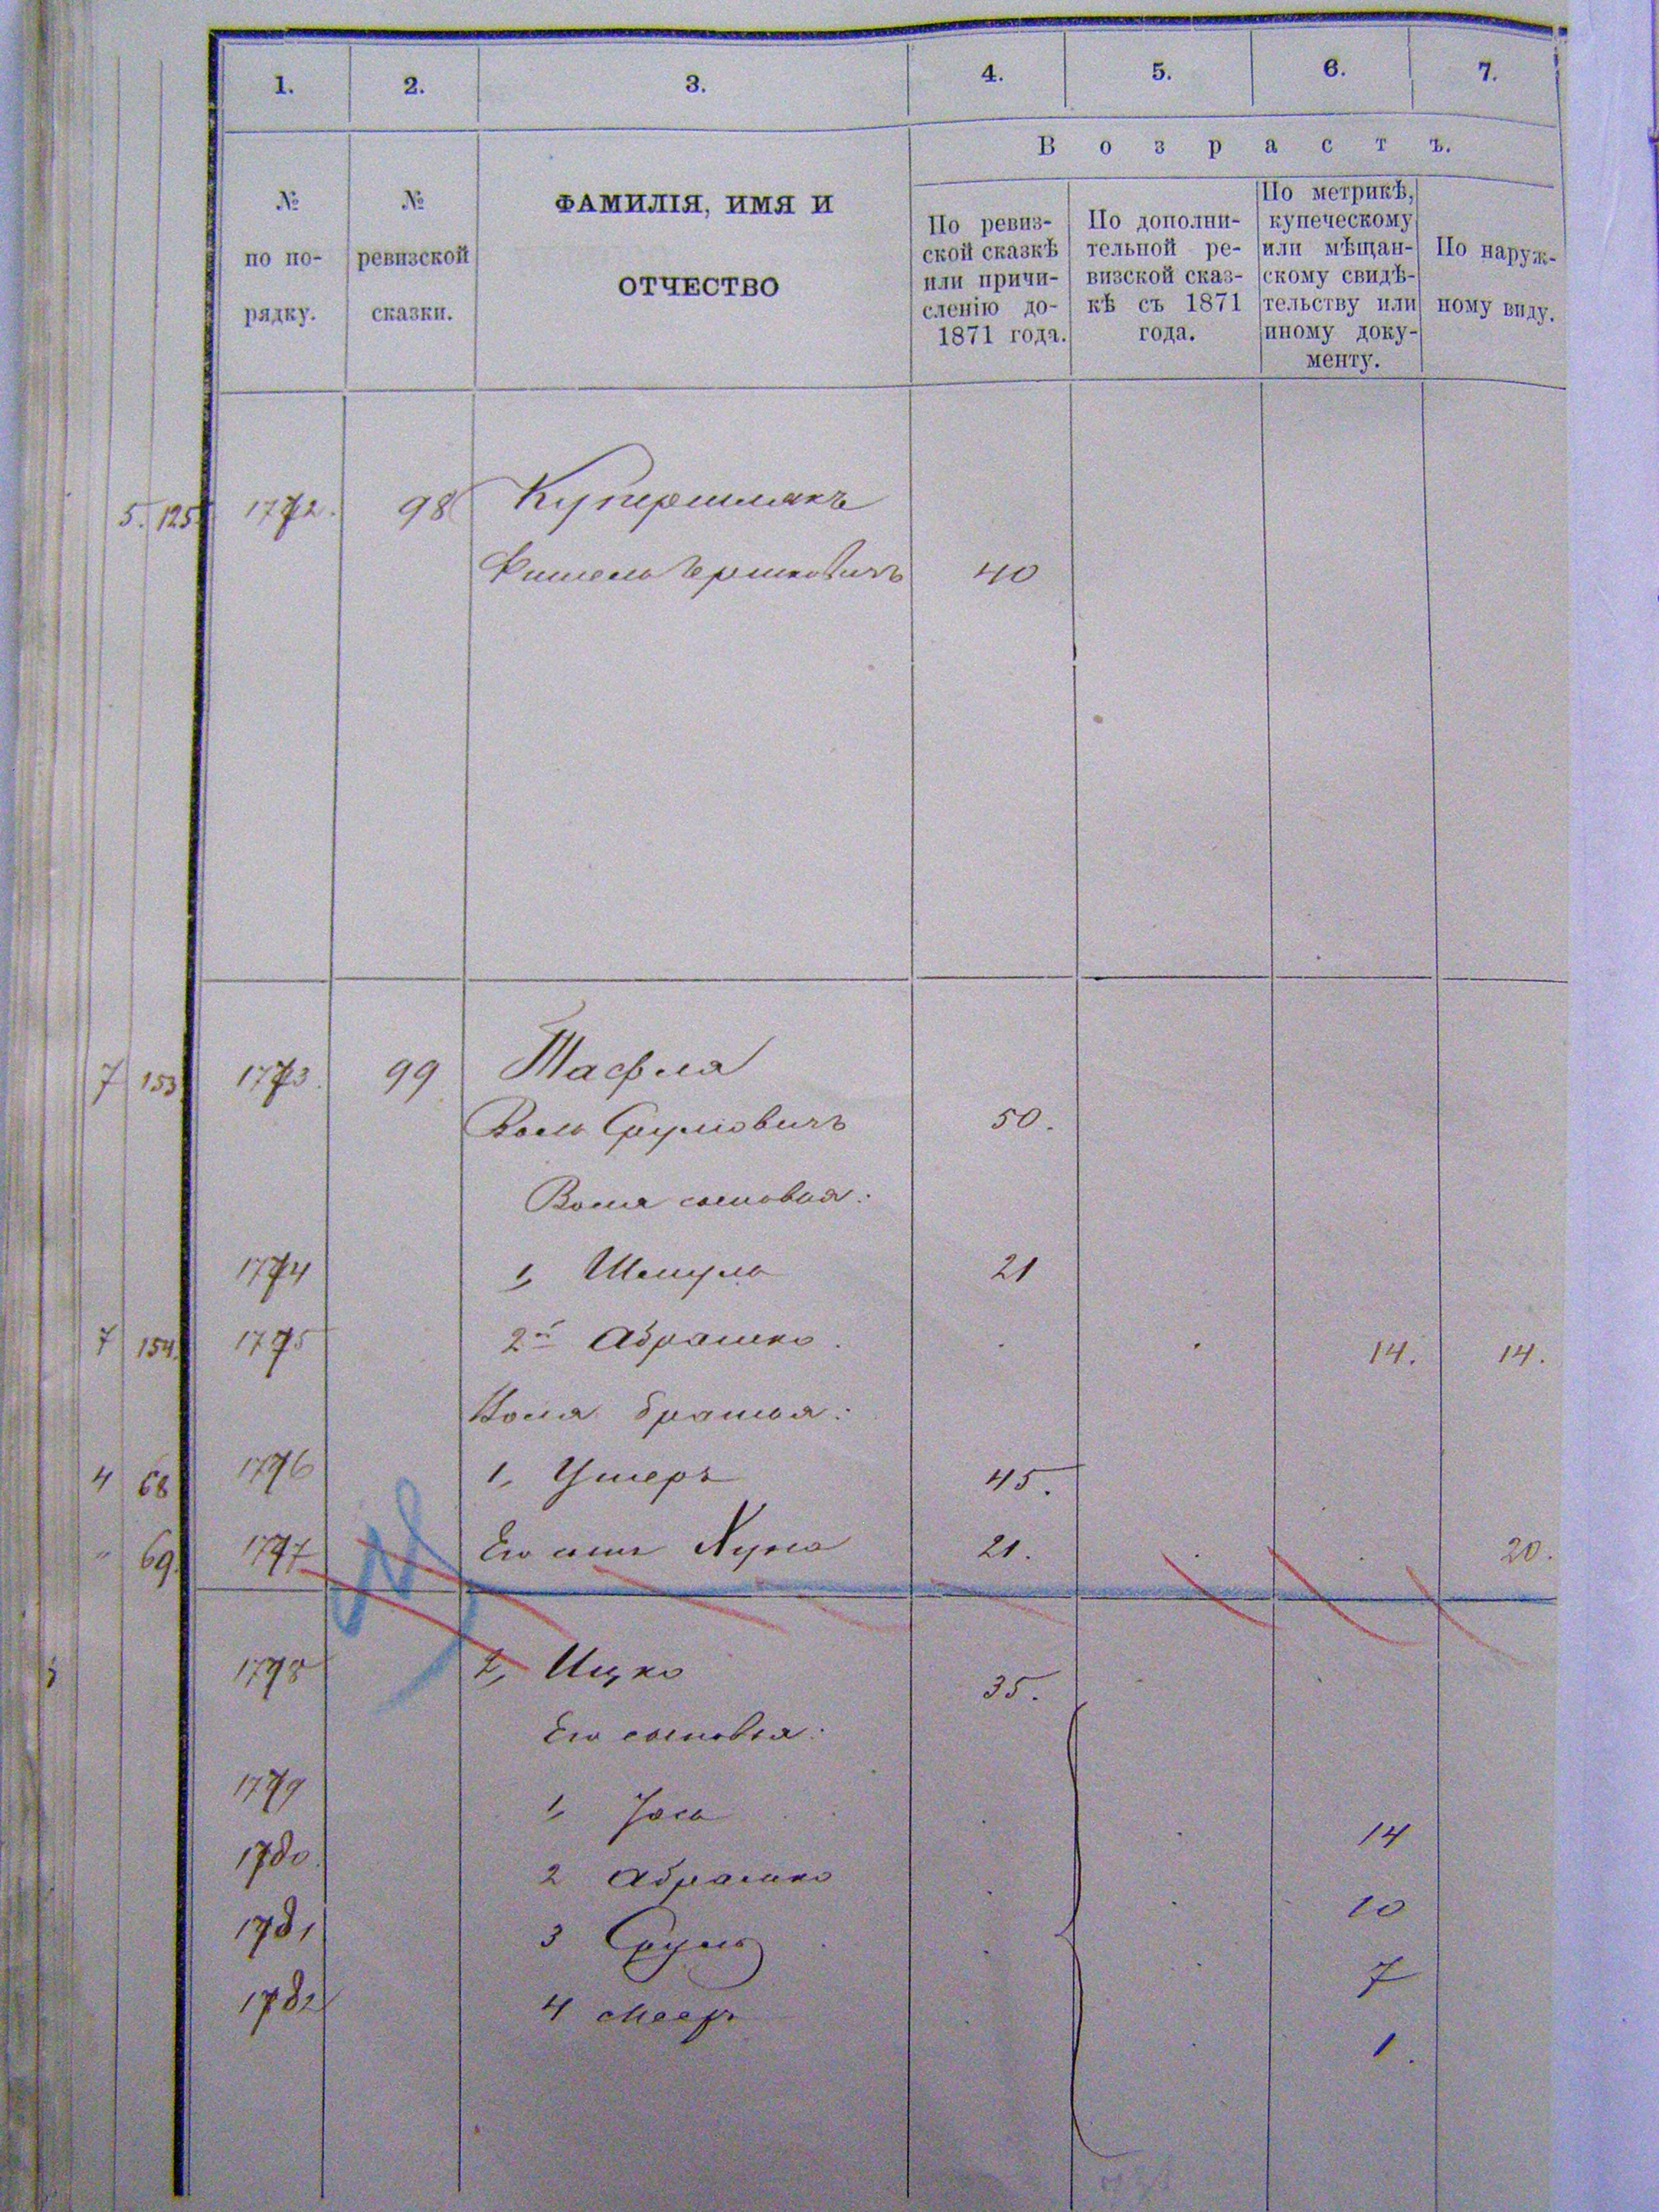 1. 2. 3. 4. 5. 6. 7.
Возрастъ.
№ по порядку.
№ ревизской сказки.
ФАМИЛІЯ, ИМЯ И
ОТЧЕСТВО
По ревиз-
ской сказкѣ
или причи-
сленію до
1871 года.
По дополни-
тельной ре-
визской сказ-
кѣ съ 1871
года.
По метрикѣ,
купеческому
или мѣщан-
скому свидѣ-
тельству или
иному доку-
менту.
По наруж-
ному виду.
5. 125. 1772. 98 Купершлакъ
Фишель Гершковичъ 40
7 153 1773. 99 Тафля
Воль Сруліовичъ 50.
Воля сыновья:
1774 1, Шмуль 21
7 154. 1775 2й Абрашко . . . 14. 14.
Воля братья:
4 68 1776 1, Ушеръ 45.
" 69. 1777 Его сынъ Хуна 21. . . 20.
1778 2, Ицко 35.
Его сыновья:
1779 1, Іось 14
1780. 2 Абрашко 10
1781 3 Сруль 7
1782 4 Мееръ 1.